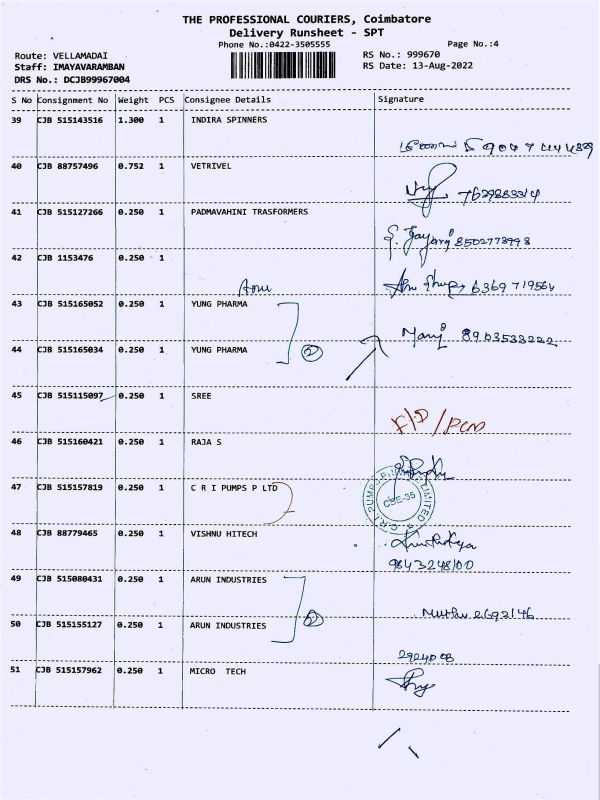 THE PROFESSIONAL COURIERS, Coimbatore
Delivery Runsheet - SPT
Phone No.:0422-3505555
Page No.:4
Route: VELLAMADAI
RS No.: 999670
Staff: IMAYAVARAMBAN
RS Date: 13-Aug-2022
DRS No.: DCJB99967004
S No Consignment No Weight PCS Consignee Details Signature
39 CJB 515143516 1.300 1 INDIRA SPINNERS
40 CJB 88757496 0.752 1 VETRIVEL
41 CJB 515127266 0.250 1 PADMAVAHINI TRASFORMERS
8502778998
42 CJB 1153476 0.250 1
6369 719564
43 CJB 515165052 0.250 1 YUNG PHARMA
8903533222
44 CJB 515165034 0.250 1 YUNG PHARMA
2
45 CJB 515115097 0.250 1 SREE
46 CJB 515160421 0.250 1 RAJA S
47 CJB 515157819 0.250 1 C R I PUMPS P LTD
C.R.I. PUMPS PRIVATE LIMITED
CBE-35
48 CJB 88779465 0.250 1 VISHNU HITECH
9843248100
49 CJB 515080431 0.250 1 ARUN INDUSTRIES
50 CJB 515155127 0.250 1 ARUN INDUSTRIES
2
Muthu 2692146
51 CJB 515157962 0.250 1 MICRO TECH